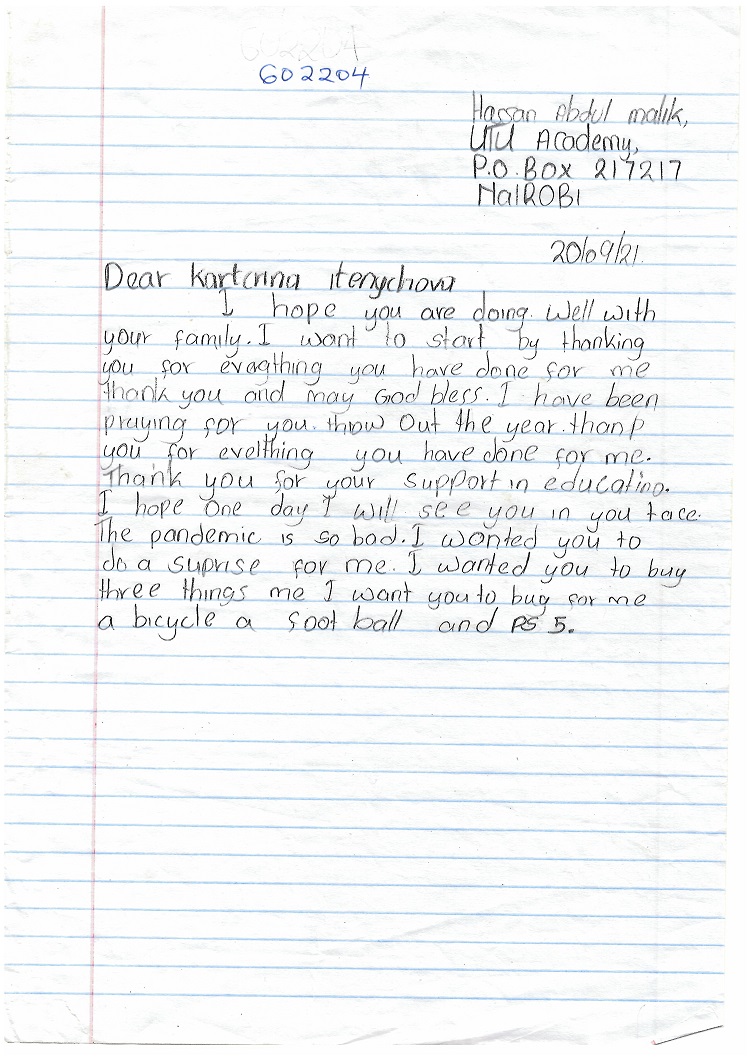 602204
602204
Hassan Abdul malik,
UTU Academy,
P.O. BOX 217217
NaIROBI
20/09/21.
Dear kartcrina itenychova
I hope you are doing. Well with
your family. I want to start by thanking
you for evagthing you have done for me
thank you and may God bless. I have been
praying for you. throw out the year. thanp
you for evelthing you have done for me.
Thank you for your support in educating.
I hope one day I will see you in you face.
The pandemic is so bad. I wonted you to
do a suprise for me. I wanted you to buy
three things me I want you to bug for me
a bicycle a foot ball and PS 5.